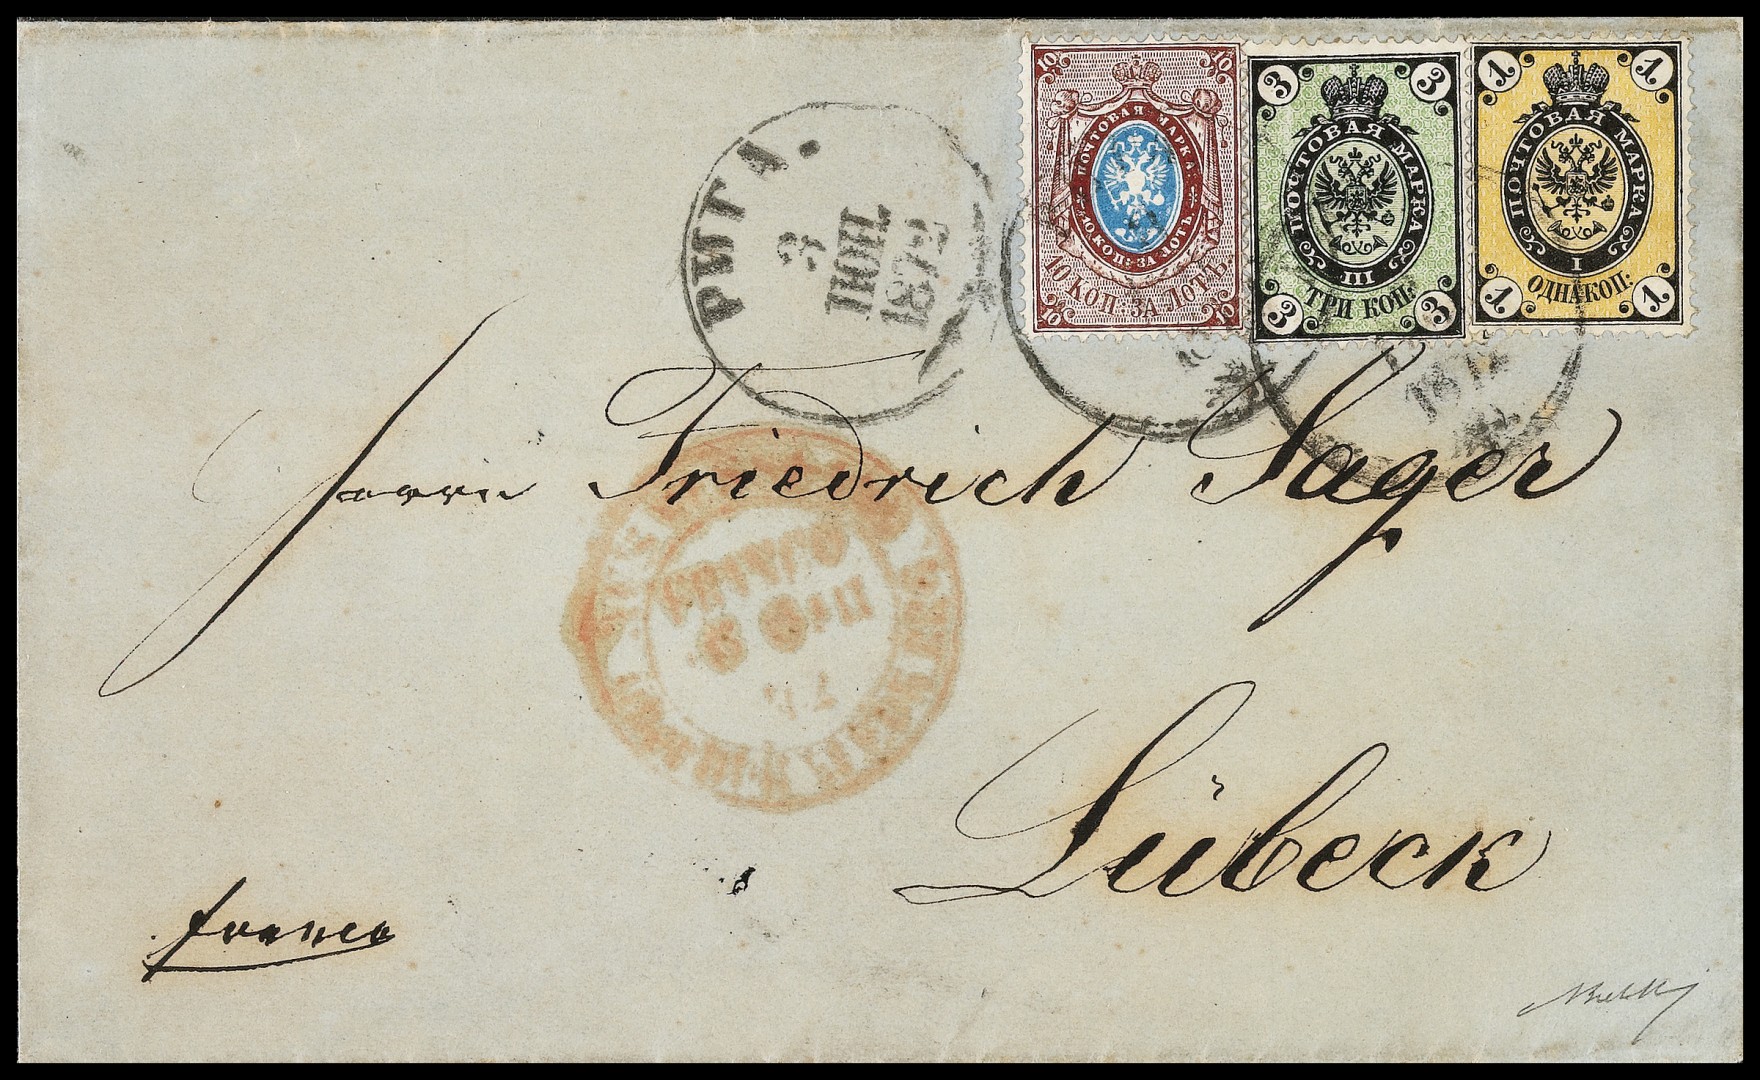 10 10
ПОЧТОВАЯ МАРКА
10 КОП: ЗА ЛОТЪ
10 КОП: ЗА ЛОТЪ
10 10
3 3
ПОЧТОВАЯ МАРКА
III
ТРИ КОП:
3 3
1 1
ПОЧТОВАЯ МАРКА
I
ОДНА КОП:
1 1
РИГА.
3
ІЮН.
1872
187
Herrn Friedrich Sager
FRANCO
Lübeck
franco